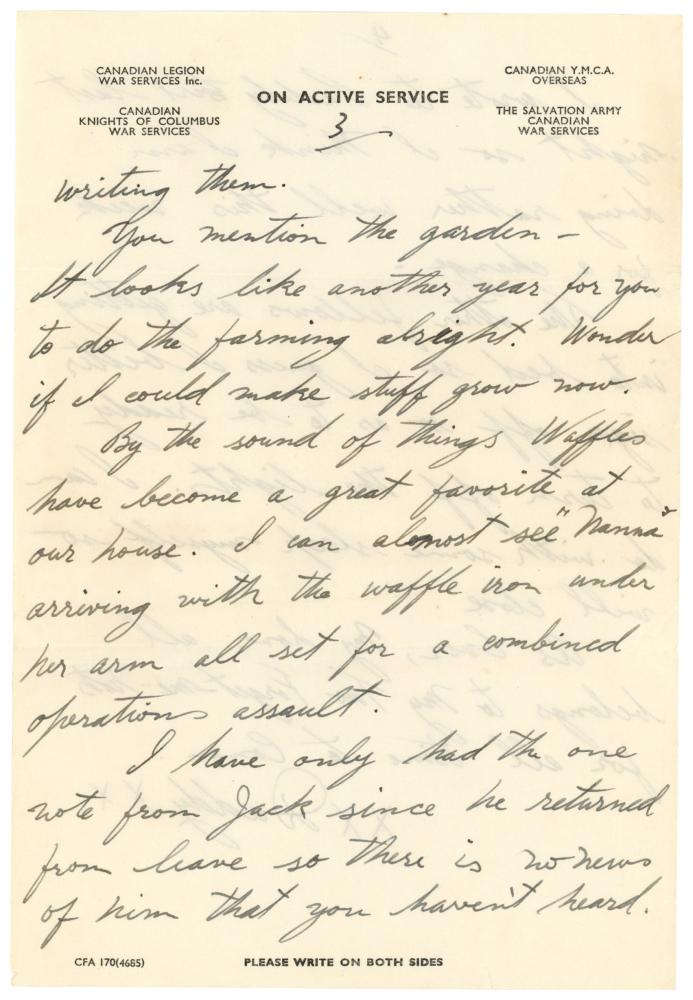 CANADIAN LEGION
WAR SERVICES Inc.
CANADIAN
KNIGHTS OF COLUMBUS
WAR SERVICES
ON ACTIVE SERVICE
CANADIAN Y.M.C.A.
OVERSEAS
THE SALVATION ARMY
CANADIAN
WAR SERVICES
3
writing them.
You mention the garden –
It looks like another year for you
to do the farming alright. Wonder
if I could make stuff grow now.
By the sound of things Waffles
have become a great favorite at
our house. I can almost see "Nanna"
arriving with the waffle iron under
her arm all set for a combined
operations assault.
I have only had the one
note from Jack since he returned
from leave so there is no news
of him that you haven't heard.
CFA 170(4685)
PLEASE WRITE ON BOTH SIDES